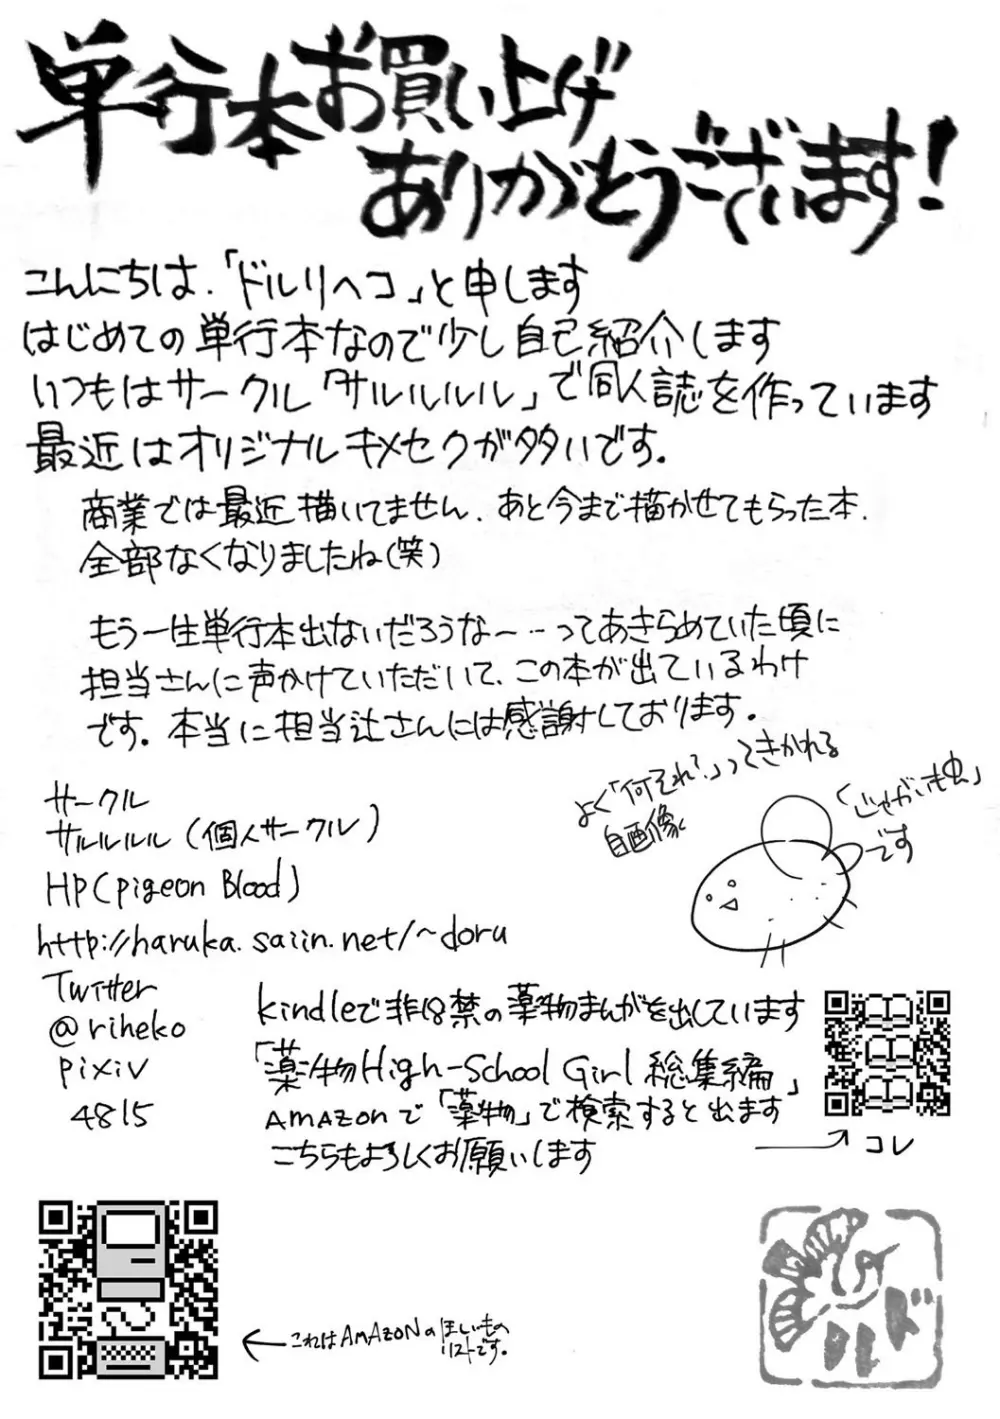 単行本お買い上げ
ありがとうございます!
こんにちは、「ドルリヘコ」と申します
はじめての単行本なので少し自己紹介します
いつもはサークル「サルルルル」で同人誌を作っています
最近はオリジナルキメセクが多いです。
商業では最近描いてません、あと今まで描かせてもらった本、
全部なくなりましたね(笑)
もう一生単行本出ないだろうな~…ってあきらめていた頃に
担当さんに声かけていただいて、この本が出ているわけ
です。本当に担当辻さんには感謝しております。
よく「何それ?」ってきかれる
自画像
「じゃがいも虫」
です
サークル
サルルルル(個人サークル)
HP(pigeon Blood)
http://haruka.saiin.net/~doru
Twitter
@riheko
pixiv
4815
kindleで非18禁の薬物まんがを出しています
「薬物High-School Girl 総集編」
Amazonで「薬物」で検索すると出ます
こちらもよろしくお願いします
コレ
これはAMAZONのほしいもの
リストです。
ドル